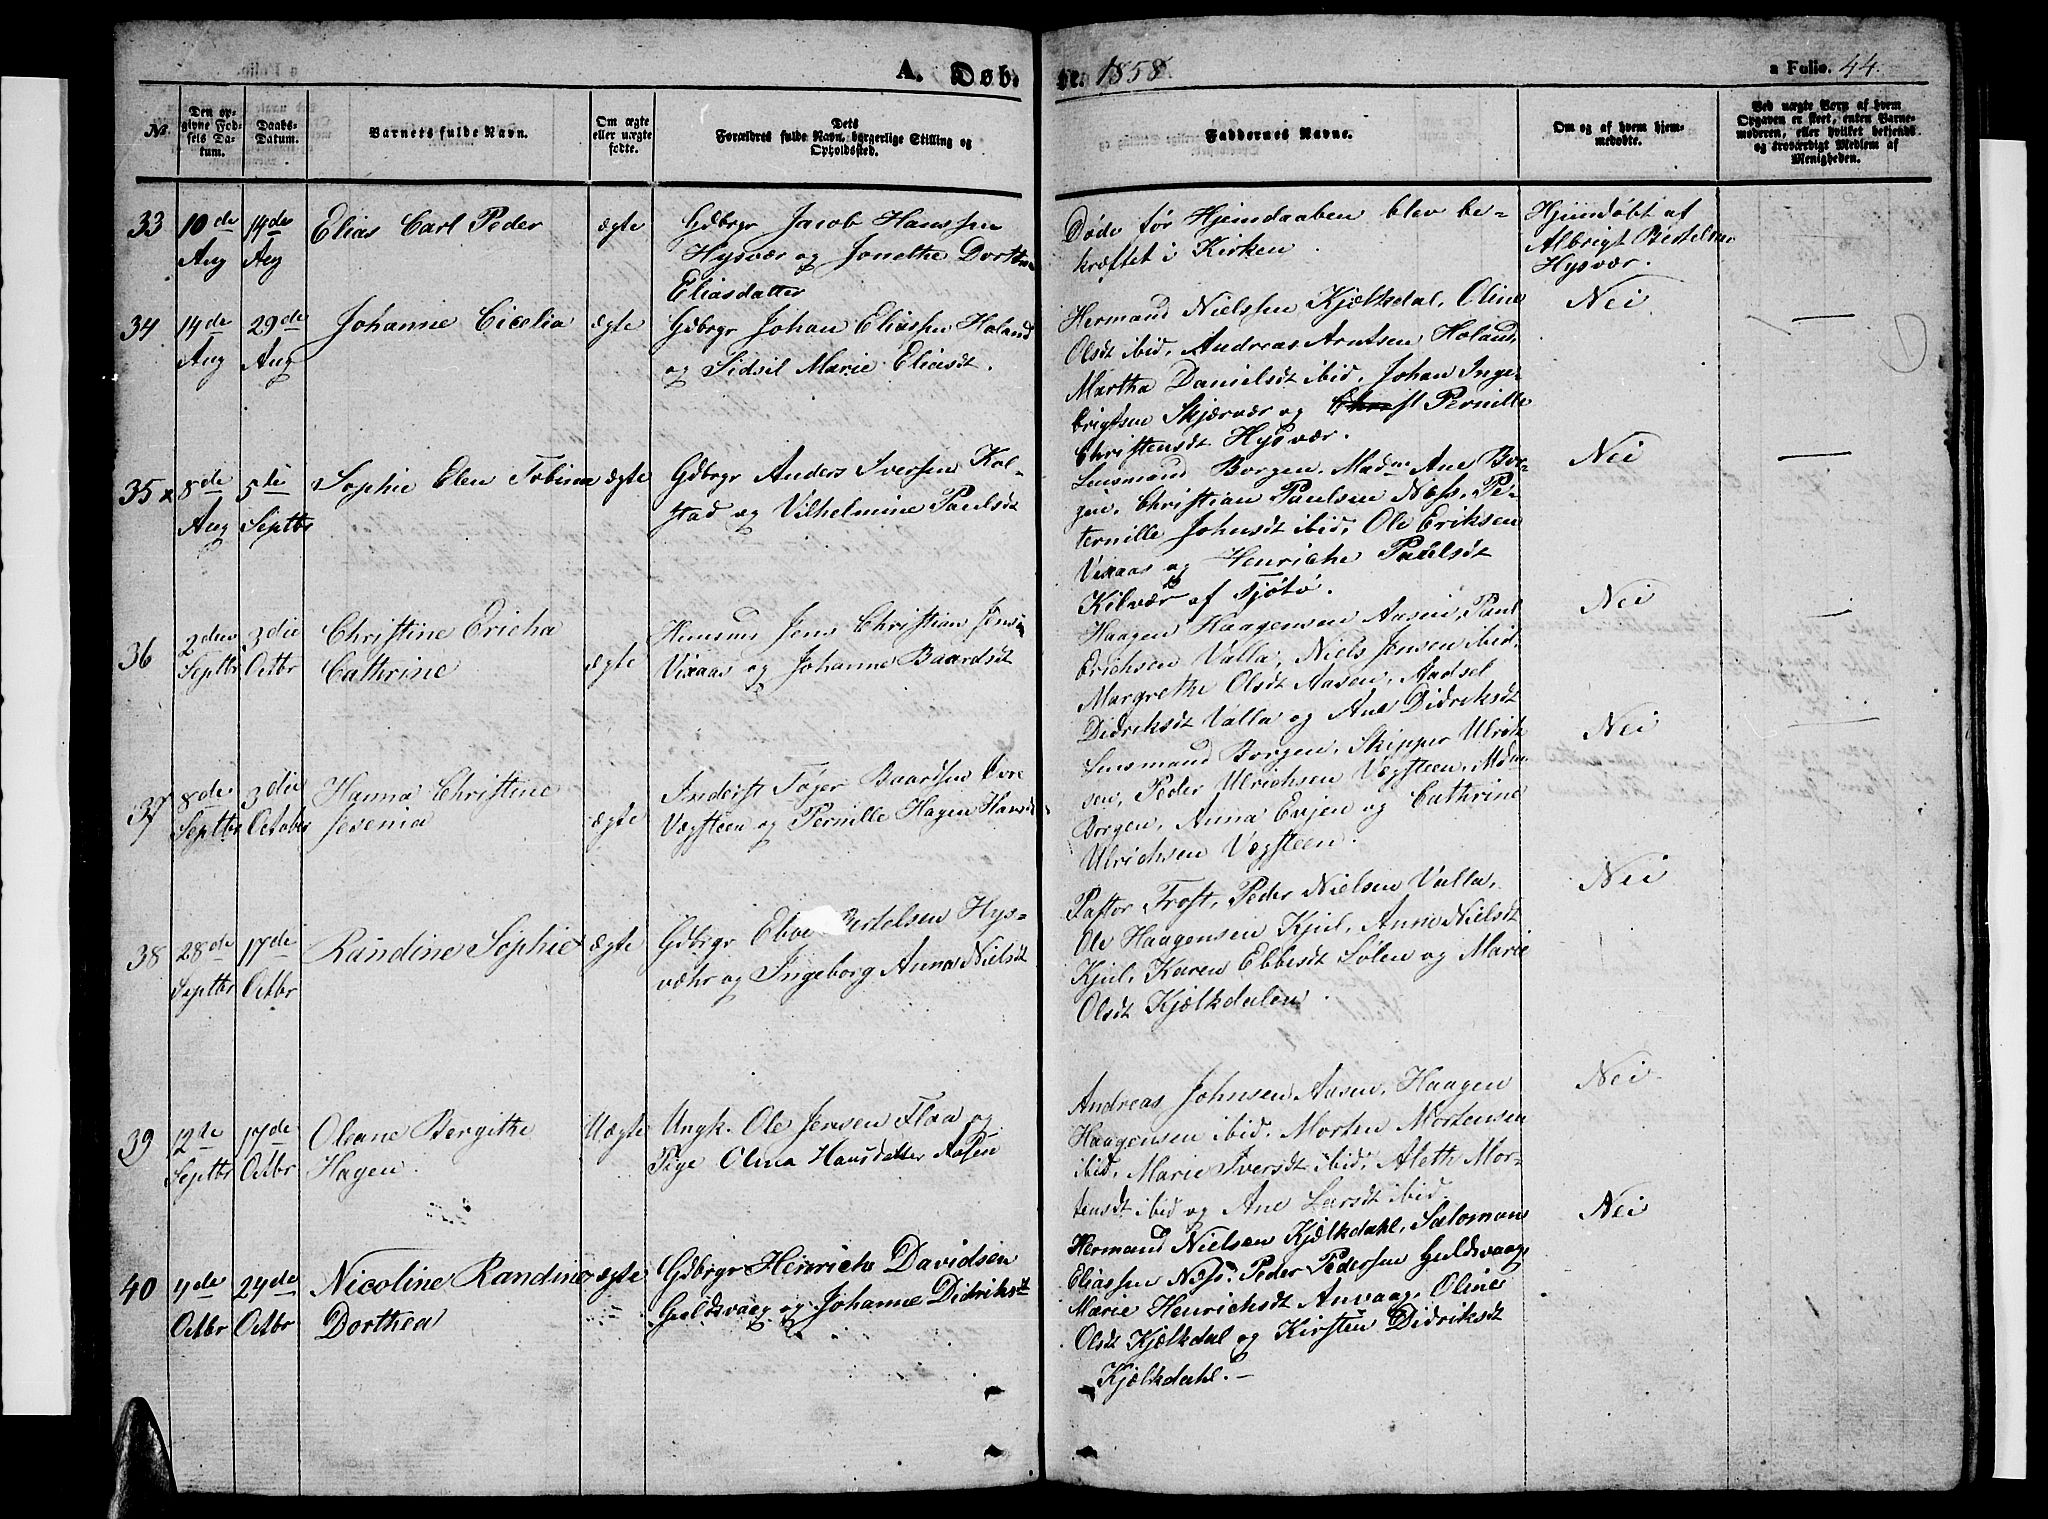 A. Døb-
te. 1858
a Folio. 44.
No.
Den op-
givne Fød-
sels Da-
tum.
Daabs-
Datum.
Barnets fulde Navn.
Om ægte
eller uægte
fødte.
Dets
Forældres fulde Navn, borgerlige Stilling og
Opholdssted.
Faddernes Navne.
Om og af hvem hjem-
medøbte.
Ved uægte Børn af hvem
Opgaven er skeet, enten Barne-
moderen, eller hvilket bekjendt
og troværdigt Medlem af
Menigheden.
33
10de
Aug
14de
Aug
Elias Carl Peder
ægte
Gdbrgr Jacob Hanssen
Hysvær og Jonethe Dorthe
Eliasdatter
Døde før Hjemdaaben blev be-
kræftet i Kirken.
Hjemdøbt af
Albrigt Bertelsen
Hysvær.
34
14de
Aug
29de
Aug
Johanne Cicelia
ægte
Gdbrgr Johan Eliassen Holand
og Sidsil Marie Eliasdt.
Hermand Nielssen Kjælkdal, Oline
Olsdt ibid, Andreas Arntsen Holand,
Martha Danielsdt ibid, Johan Inge-
brigtsen Skjærvær og Pernille
Christensdt Hysvær.
Nei
—
35 x
8de
Aug
5te
Septbr
Sophie Elen Tobina
ægte
Gdbrgr Anders Iversen Kol-
stad og Vilhelmine Paulsdt
Lensmand Borgen, Madm Ane Bor-
gen, Christian Paulsen Næss, Pe-
ternille Johnsdt ibid, Ole Eriksen
Vixaas og Henriche Paulsdt
Kilvær af Tjøtø.
Nei
—
36
2den
Septbr
3die
Octbr
Christine Ericha
Cathrine
ægte
Huusmd Jens Christian Jensen
Vixaas og Johanne Baardsdt
Haagen Haagensen Aasen, Paul
Erichsen Valla, Niels Jensen ibid,
Margrethe Olsdt Aasen, Aadsel
Didriksdt Valla og Ane Didriksdt
Nei
—
37
8de
Septbr
3die
October
Hanna Christine
Jesenia
ægte
Inderst Tøger Baardsen Øvre
Vægsteen og Pernille Hagen Hansdt
Lensmand Borgen, Skipper Ulrik-
sen, Peder Ulrichsen Vægsteen, Mdm
Borgen, Anna Evjen og Cathrine
Ulrichsen Vægsteen.
Nei
—
38
28de
Septbr
17de
Octbr
Randine Sophie
ægte
Gdbrgr Ebbe Bertelsen Hys-
væhr og Ingeborg Anna Nielsdt
Pastor Frost, Peder Nielsen Valla,
Ole Haagensen Kjul, Anne Nielsdt
Kjul, Karen Ebbesdt Sølen og Marie
Olsdt Kjælkdalen.
Nei
39
12te
Septbr
17de
Octbr
Oleane Bergithe
Hagen.
Uægte
Ungk. Ole Jensen Flaa og
Pige Olina Hansdatter Aasen
Andreas Johnsen Aasen, Haagen
Haagensen ibid. Morten Mortensen
ibid, Marie Iversdt ibid, Aleth Mor-
tensdt ibid og Ane Larsdt ibid.
Nei.
40
4de
Octbr
24de
Octbr
Nicoline Randine
Dorthea
ægte
Gdbrgr Henrich Davidsen
Guldsvaag og Johanne Didriksdt
Hermand Nielsen Kjælkdahl, Salomon
Eliassen Næss, Peder Pedersen Guldsvaag,
Marie Henrichsdt Anvaag, Oline
Olsdt Kjælkdal og Kirsten Didriksdt
Kjælkdahl. —
Nei